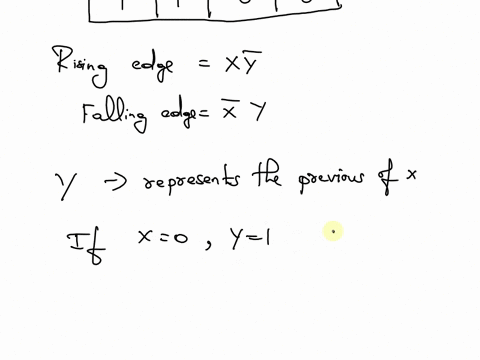 1 1 0 0
Rising edge = X Y̅
Falling edge = X̅ Y
Y → represents the previous of x
If X=0, Y=1